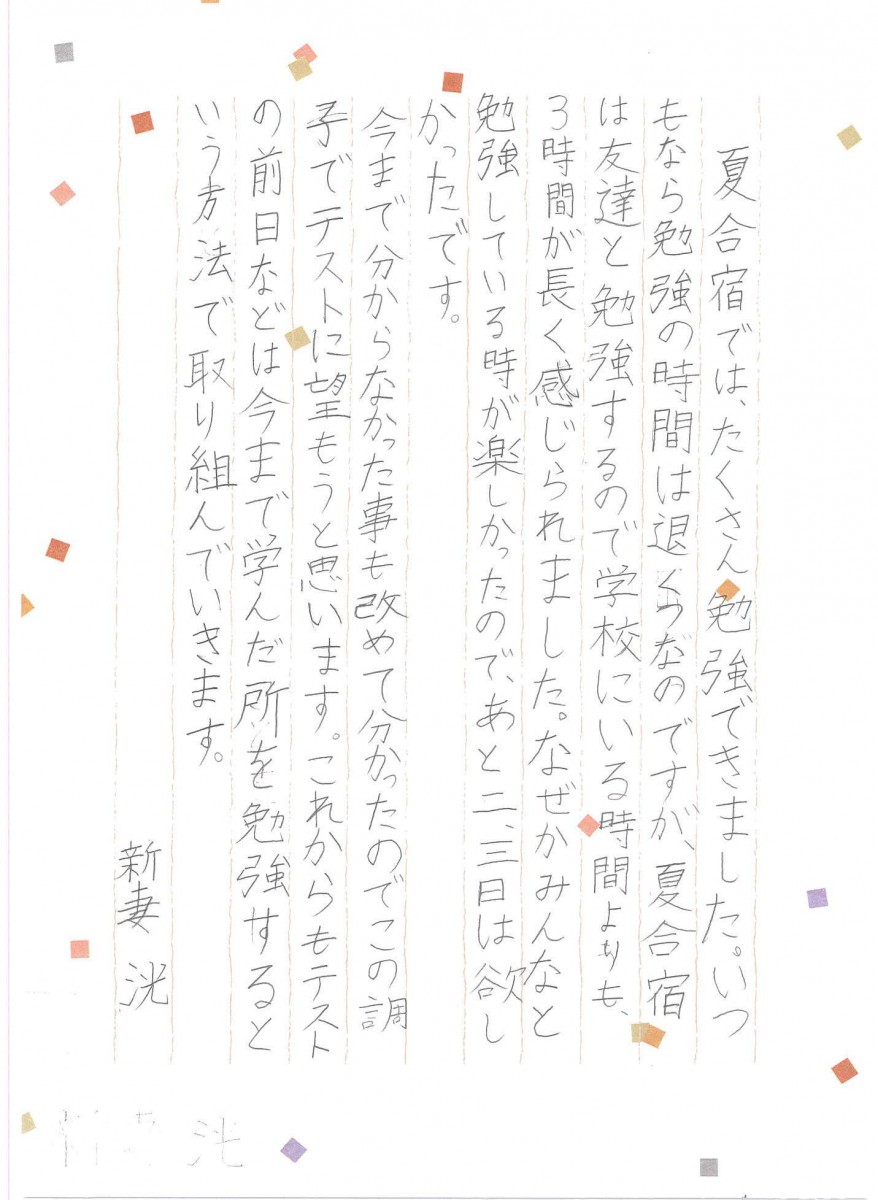 夏合宿では、たくさん勉強できました。いつ
もなら勉強の時間は退くつなのですが、夏合宿
は友達と勉強するので学校にいる時間よりも、
3時間が長く感じられました。なぜかみんなと
勉強している時が楽しかったので、あと二、三日は欲し
かったです。
今まで分からなかった事も改めて分かったのでこの調
子でテストに望もうと思います。これからもテスト
の前日などは今まで学んだ所を勉強すると
いう方法で取り組んでいきます。
新妻 洸
洸